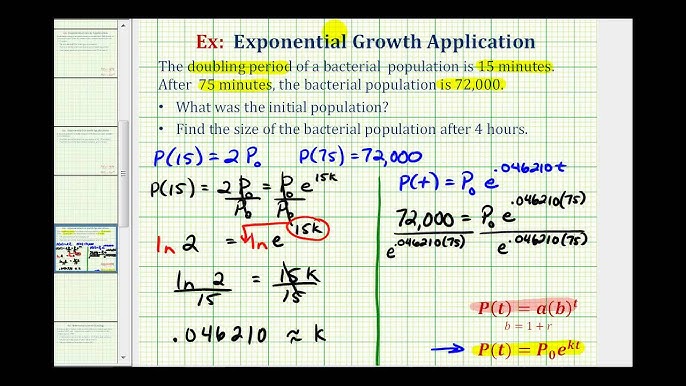 Ex: Exponential Growth Application
The doubling period of a bacterial population is 15 minutes.
After 75 minutes, the bacterial population is 72,000.
• What was the initial population?
• Find the size of the bacterial population after 4 hours.
P(15) = 2P₀ P(75) = 72,000
P(15) = 2P₀/P₀ = P₀e^{15k}/P₀
ln 2 = ln e^{15k}
ln 2/15 = 15k/15
.046210 ≈ k
P(t) = P₀ e^{.046210t}
72,000/e^{.046210(75)} = P₀ e^{.046210(75)}/e^{.046210(75)}
P(t) = a(b)^t
b = 1 + r
→ P(t) = P₀e^{kt}